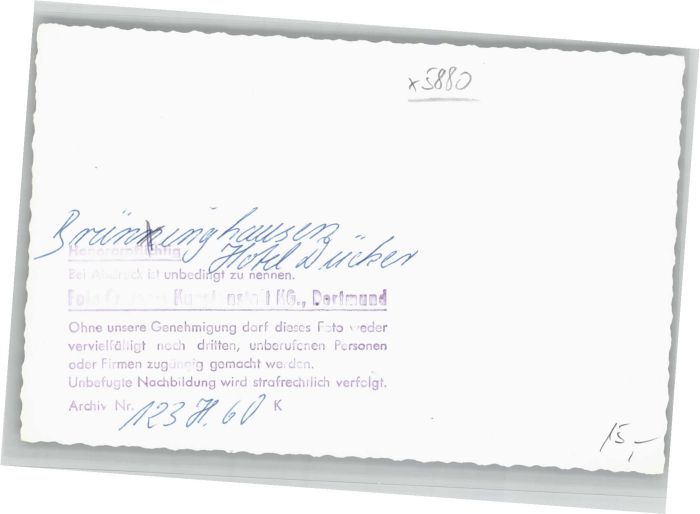 x5880
Brünninghausen
Hotel Dücker
Honorarpflichtig
Bei Abdruck ist unbedingt zu nennen.
Foto Kunstanstalt KG., Dortmund
Ohne unsere Genehmigung darf dieses Foto weder
vervielfältigt noch dritten, unberufenen Personen
oder Firmen zugängig gemacht werden.
Unbefugte Nachbildung wird strafrechtlich verfolgt.
Archiv Nr. 123 H. 60 K
15,-